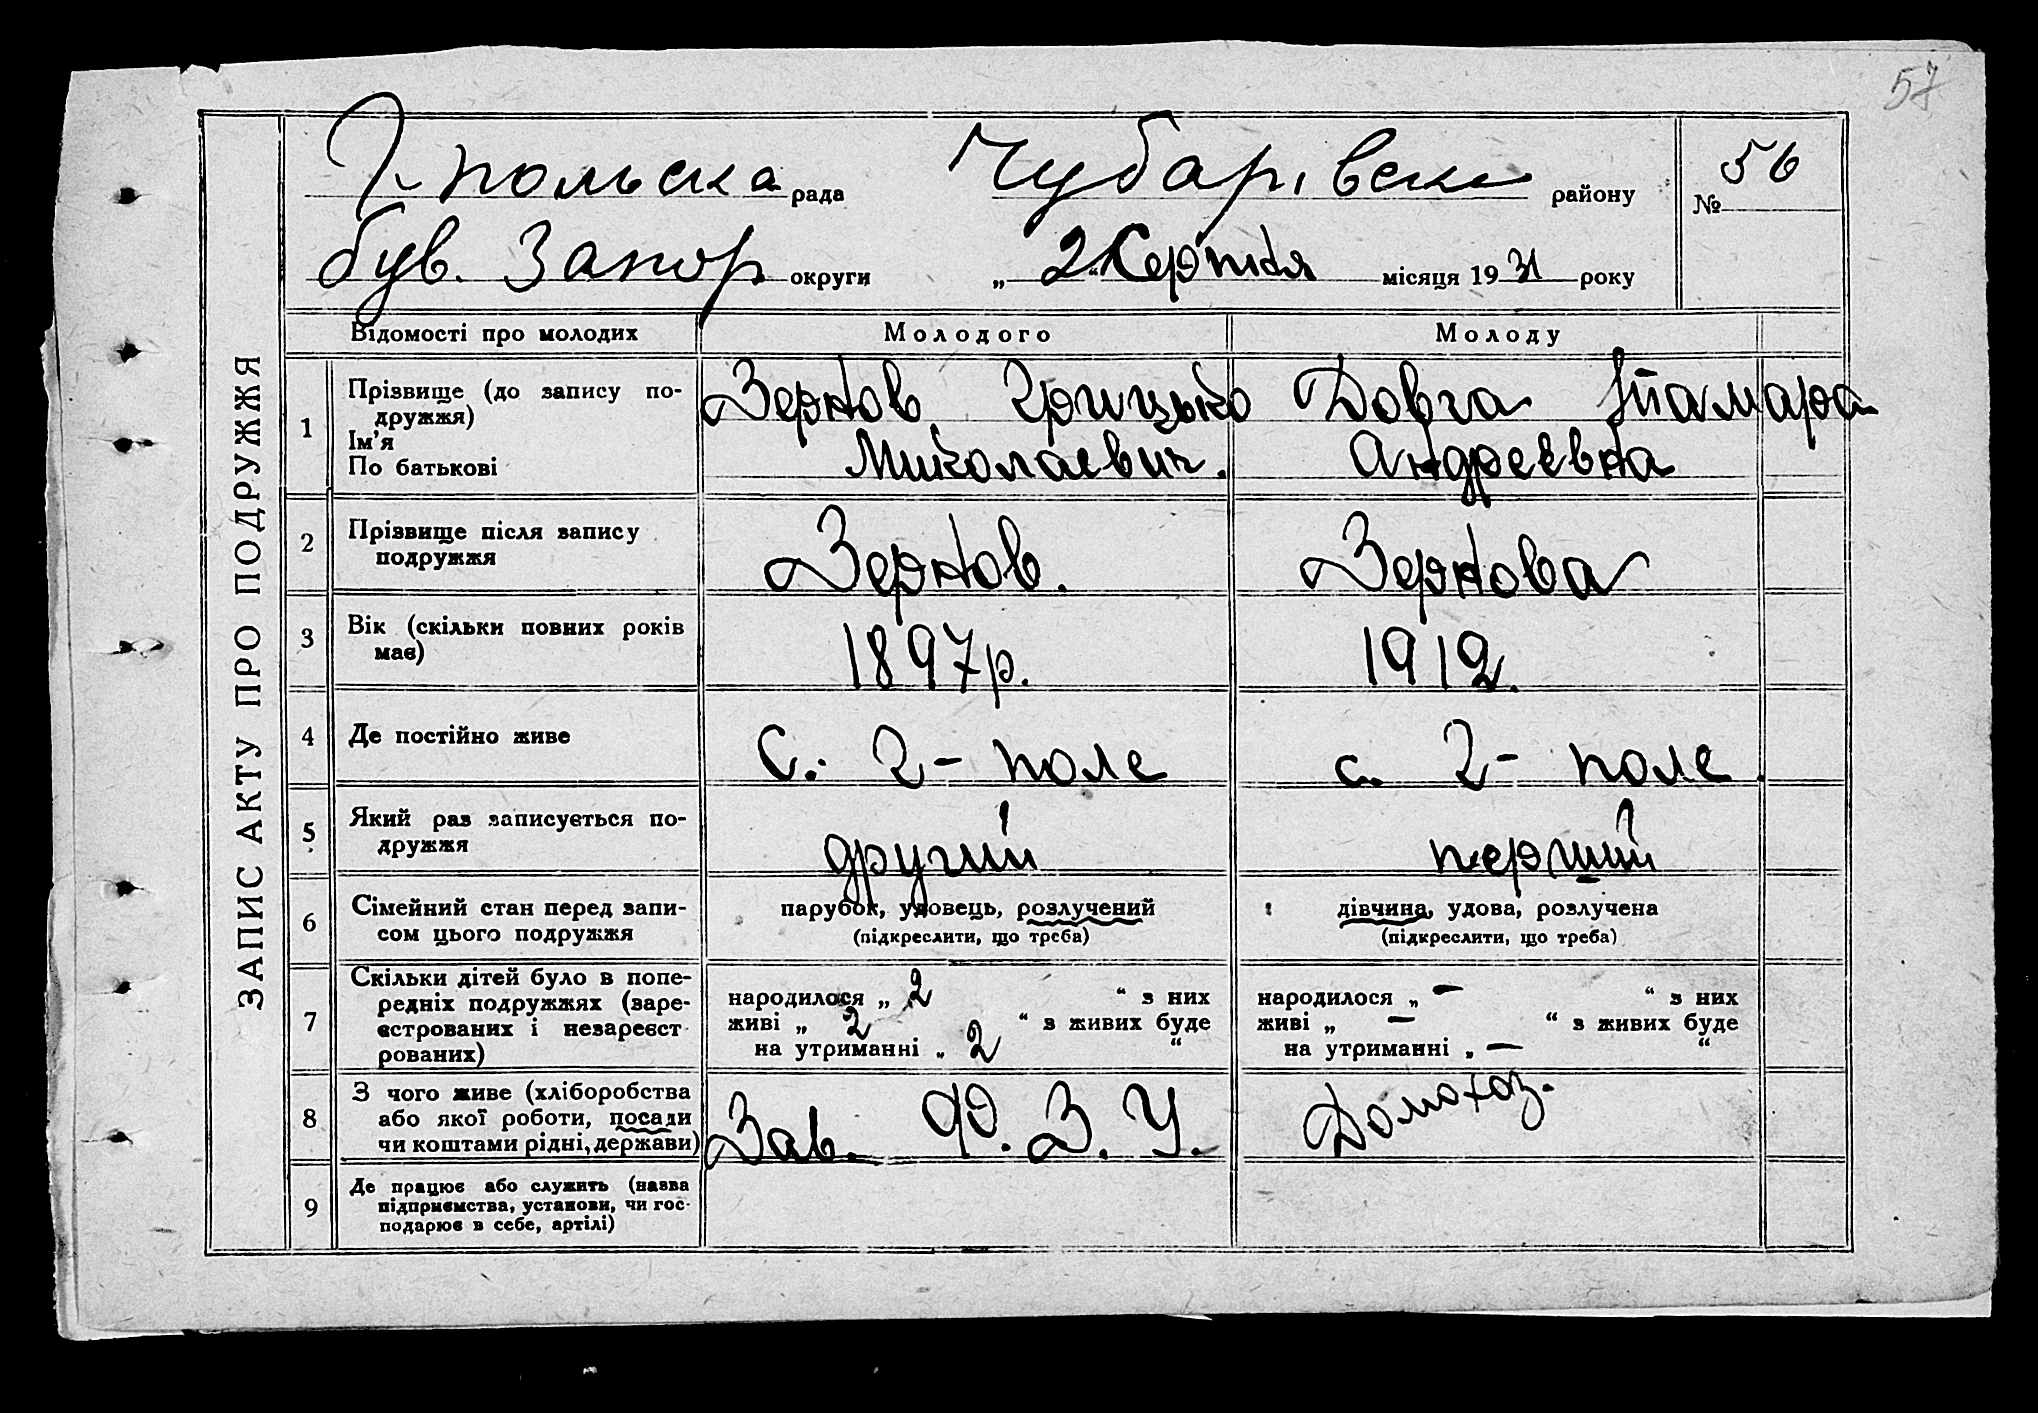 57
Г-польска рада Чубарівськ району № 56
був. Запор округи „ 2 “ Серпня місяця 19 31 року
ЗАПИС АКТУ ПРО ПОДРУЖЖЯ
Відомості про молодих Молодого Молоду
1 Прізвище (до запису по-
дружжя)
Ім’я
По батькові
Зернов Грицько
Миколаєвич.
Довга Тамара
Андреєвна
2 Прізвище після запису
подружжя
Зернов.
Зернова
3 Вік (скільки повних років
має)
1897 р.
1912.
4 Де постійно живе
С. 2-поле
с. 2-поле.
5 Який раз записується по-
дружжя
другий
перший
6 Сімейний стан перед запи-
сом цього подружжя
парубок, удовець, розлучений
(підкреслити, що треба)
дівчина, удова, розлучена
(підкреслити, що треба)
7 Скільки дітей було в попе-
редніх подружжях (заре-
єстрованих і незареєст-
рованих)
народилося „ 2 “ з них
живі „ 2 “ з живих буде
на утриманні „ 2 “
народилося „ — “ з них
живі „ — “ з живих буде
на утриманні „ — “
8 З чого живе (хліборобства
або якої роботи, посади
чи коштами рідні, держави)
Зав. Ф. З. У.
Домохоз.
9 Де працює або служить (назва
підприємства, установи, чи гос-
подарює в себе, артілі)